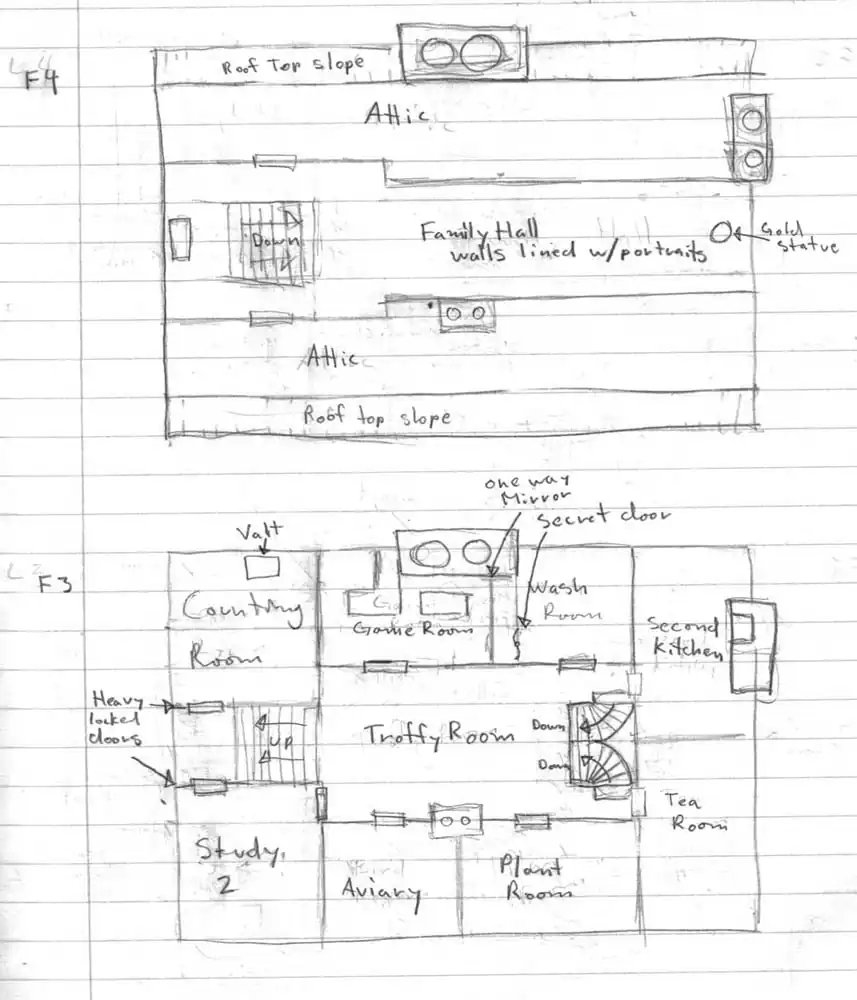 F4
Roof Top Slope
Attic
Down
Family Hall
walls lined w/portraits
Gold
statue
Attic
Roof top slope
one way
Mirror
Secret door
Valt
F3
Counting
Room
Game Room
Wash
Room
Second
Kitchen
Heavy
locked
doors
up
Troffy Room
Down
Down
Tea
Room
Study
2
Aviary
Plant
Room